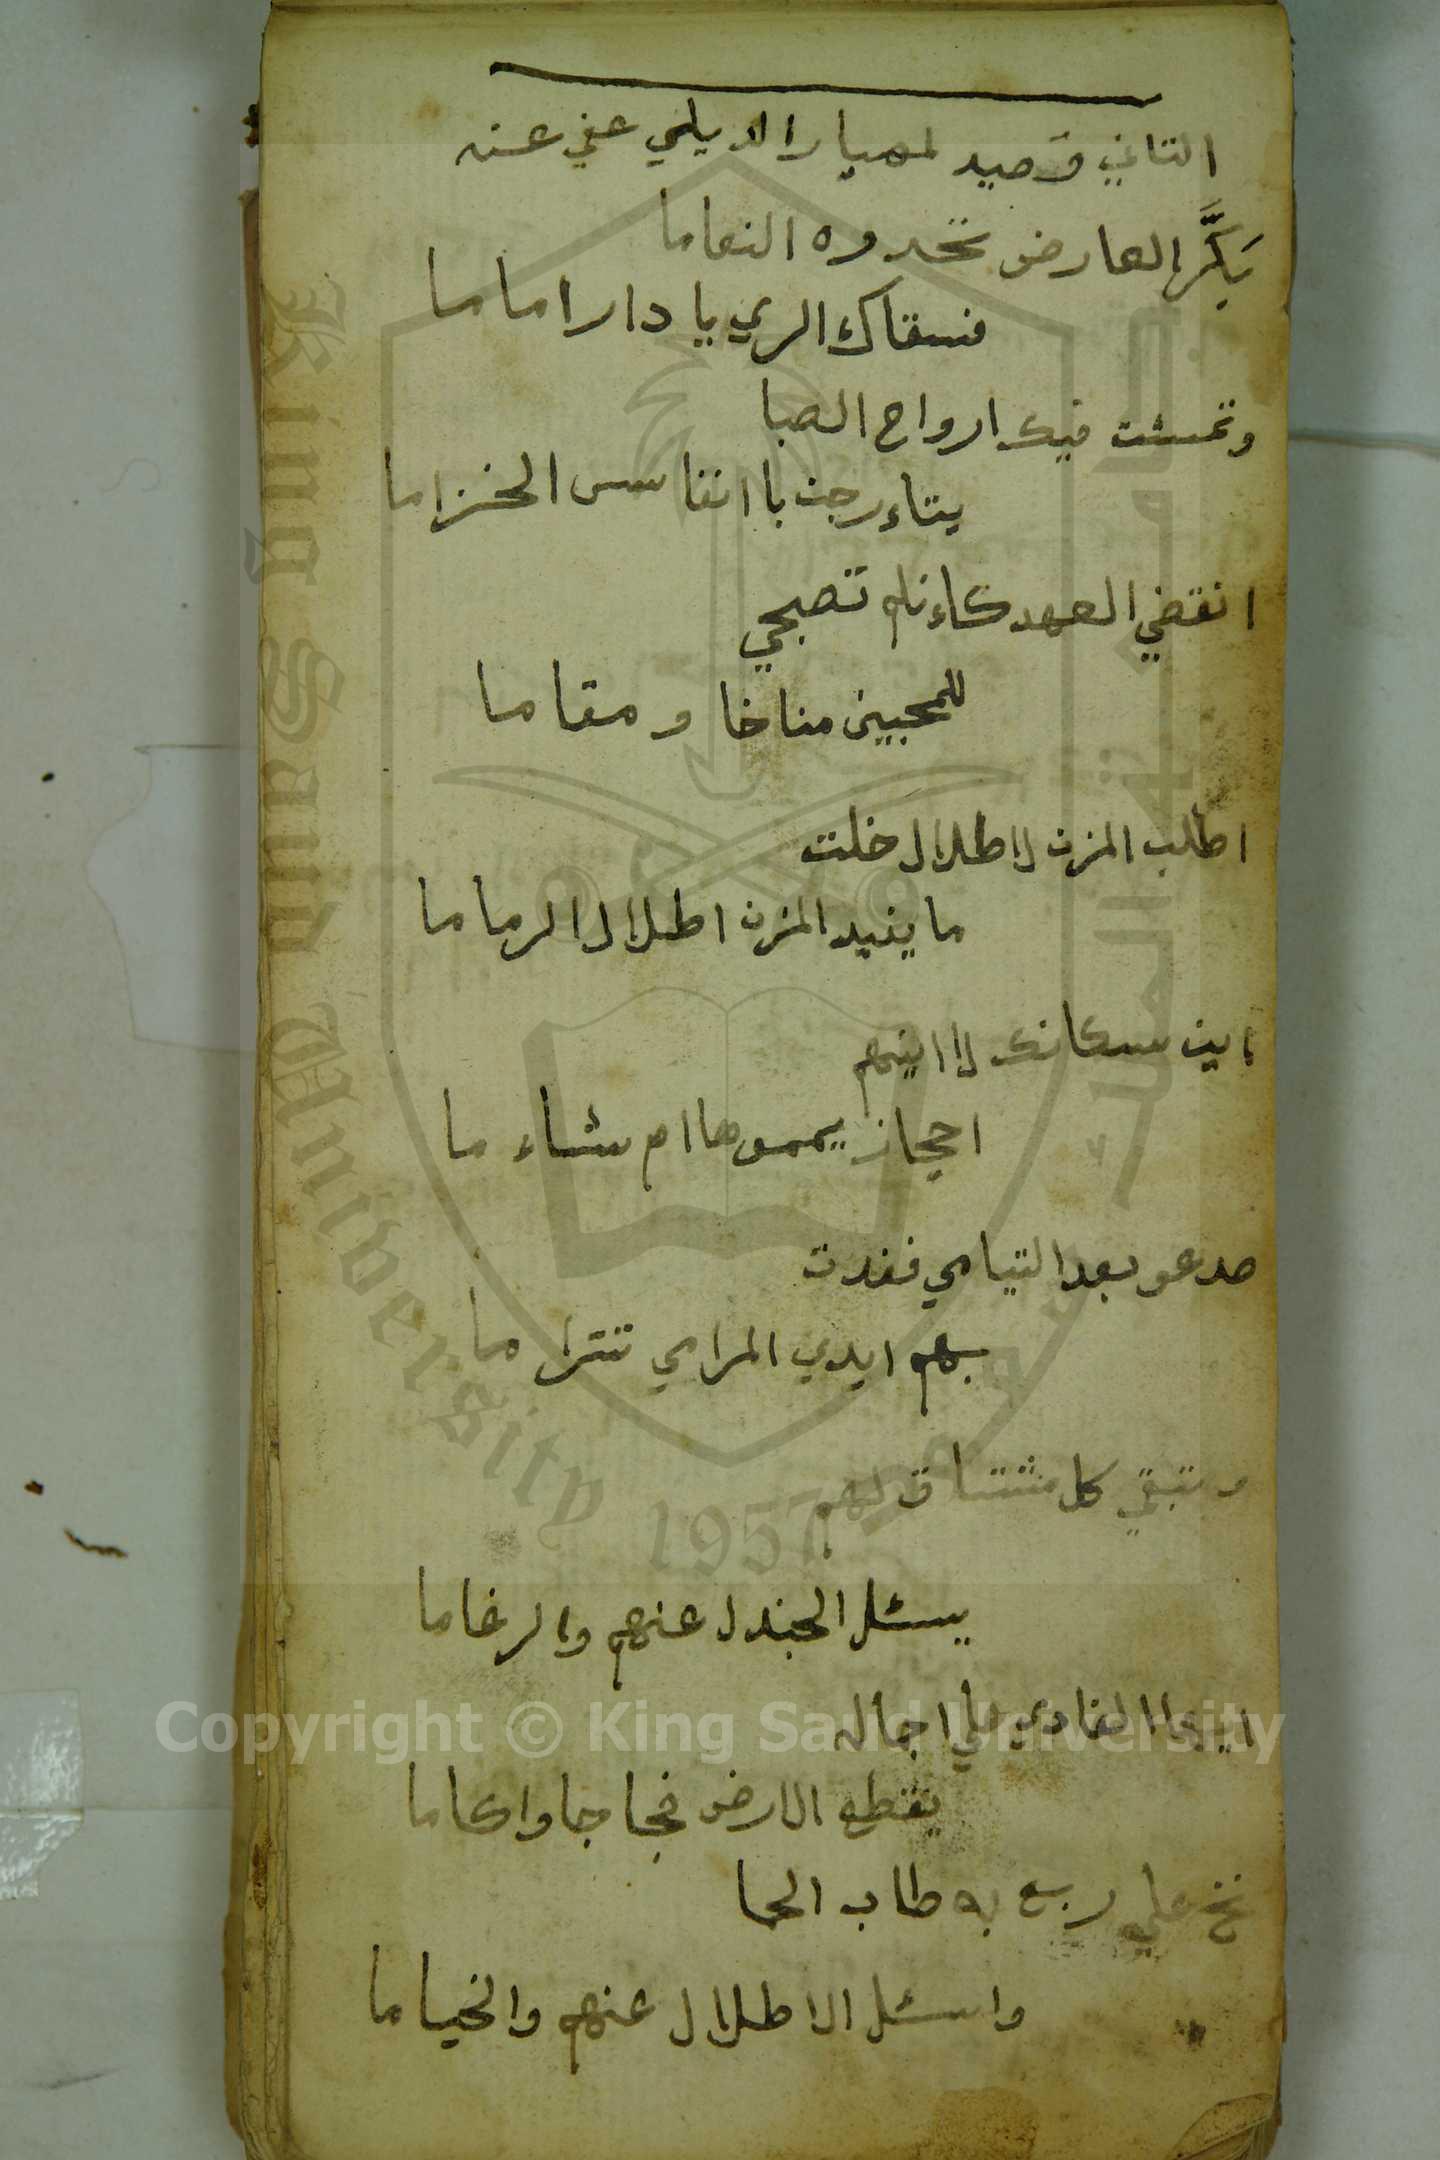 الثاني قصيد لمهيار الديلمي عفي عنه
بَكَّر العارض تحدوه النعاما
فسقاك الري يا دار اماما
وتمشت فيك ارواح الصبا
يتاءرجن باانفاس الخزاما
انقضي العهد كاءن لم تصبحي
للمحبين مناخا ومقاما
اطلب المزن لاطلال خلت
ما يفيد المزن اطلال الرماما
اين سكانك لا اينهم
احجاز يمموها ام شاءما
صدعو بعد التيامي فغدت
بهم ايدي المرامي تتراما
وتبقي كل مشتاق لهم
يسئل الجندل عنهم والرغاما
ايها الغادي علي اجماله
يقطع الارض فجاجا واكاما
نخ علي ربع به طاب الحما
واسئل الاطلال عنهم والخياما
King Saud University
1957
جامعة الملك سعود
Copyright © King Saud University